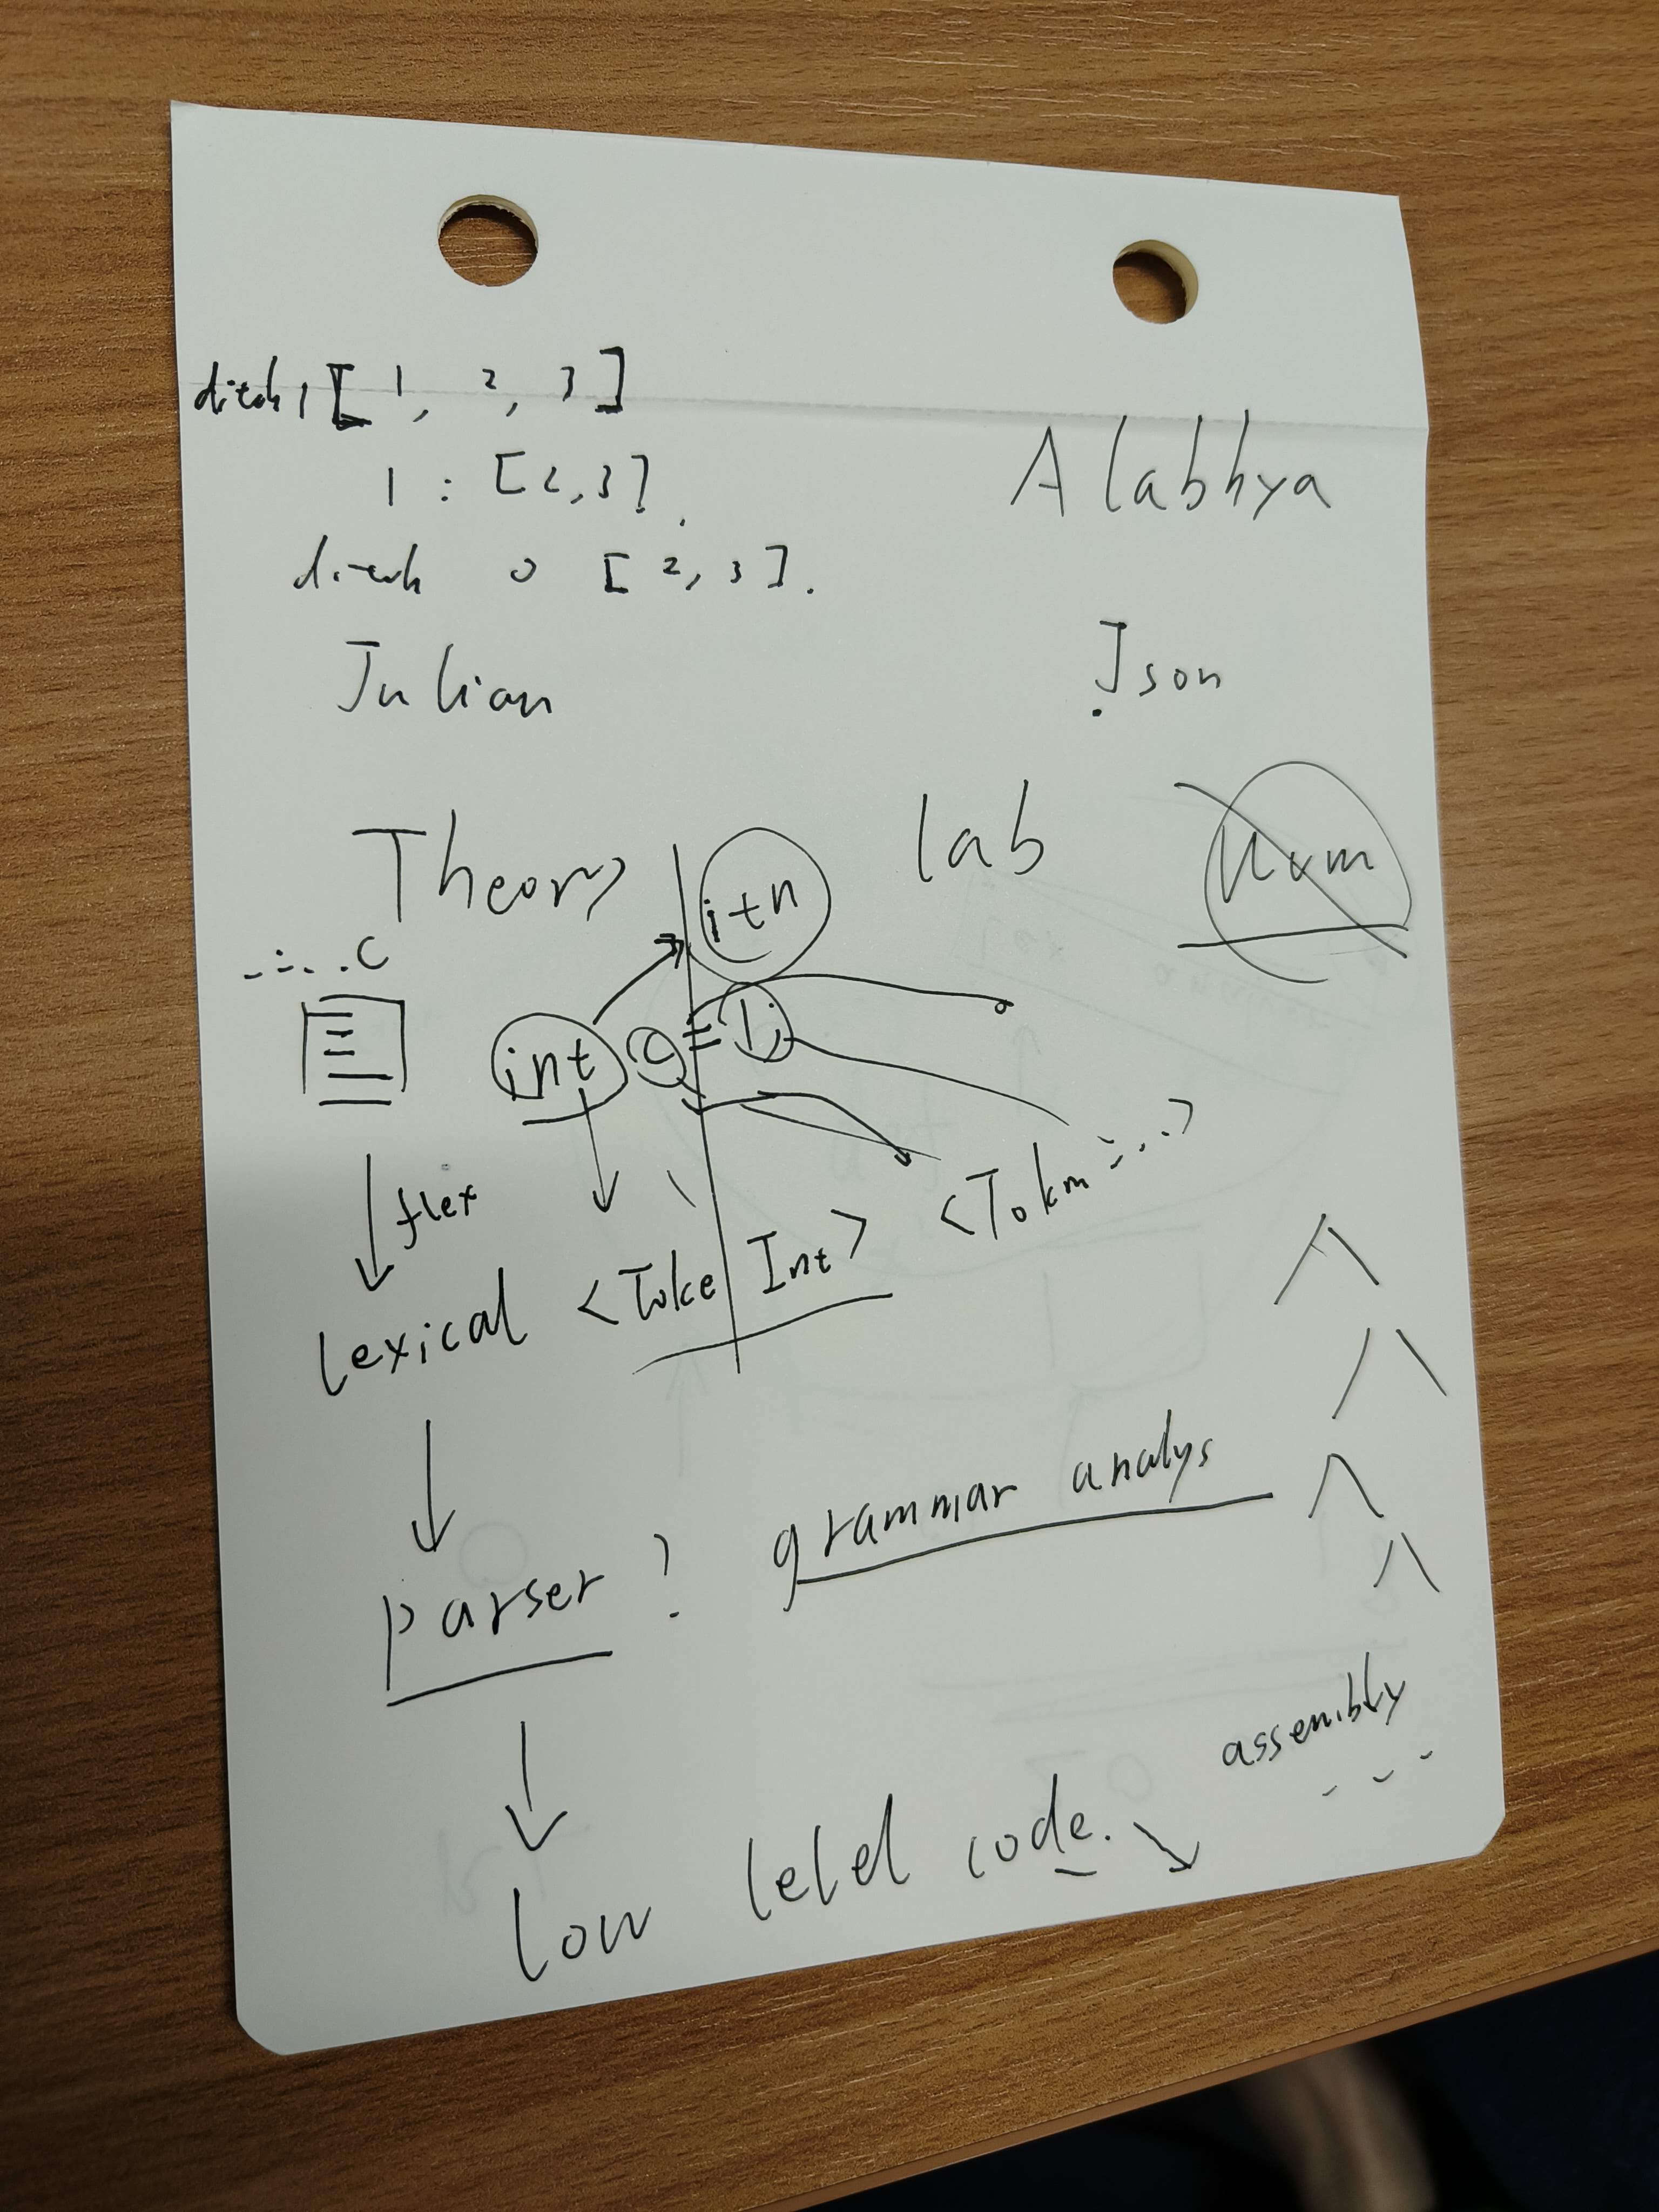 ditch 1 [ 1, 2, 3 ]
1 : [2,3].
Alabhya
ditch 0 [ 2, 3 ].
Julian
Json
Theory
lab
itn
.C
int c = 1;
flex
lexical <Toke Int> <Tokm ...>
parser ? grammar analys
assembly
...
low lelel code.